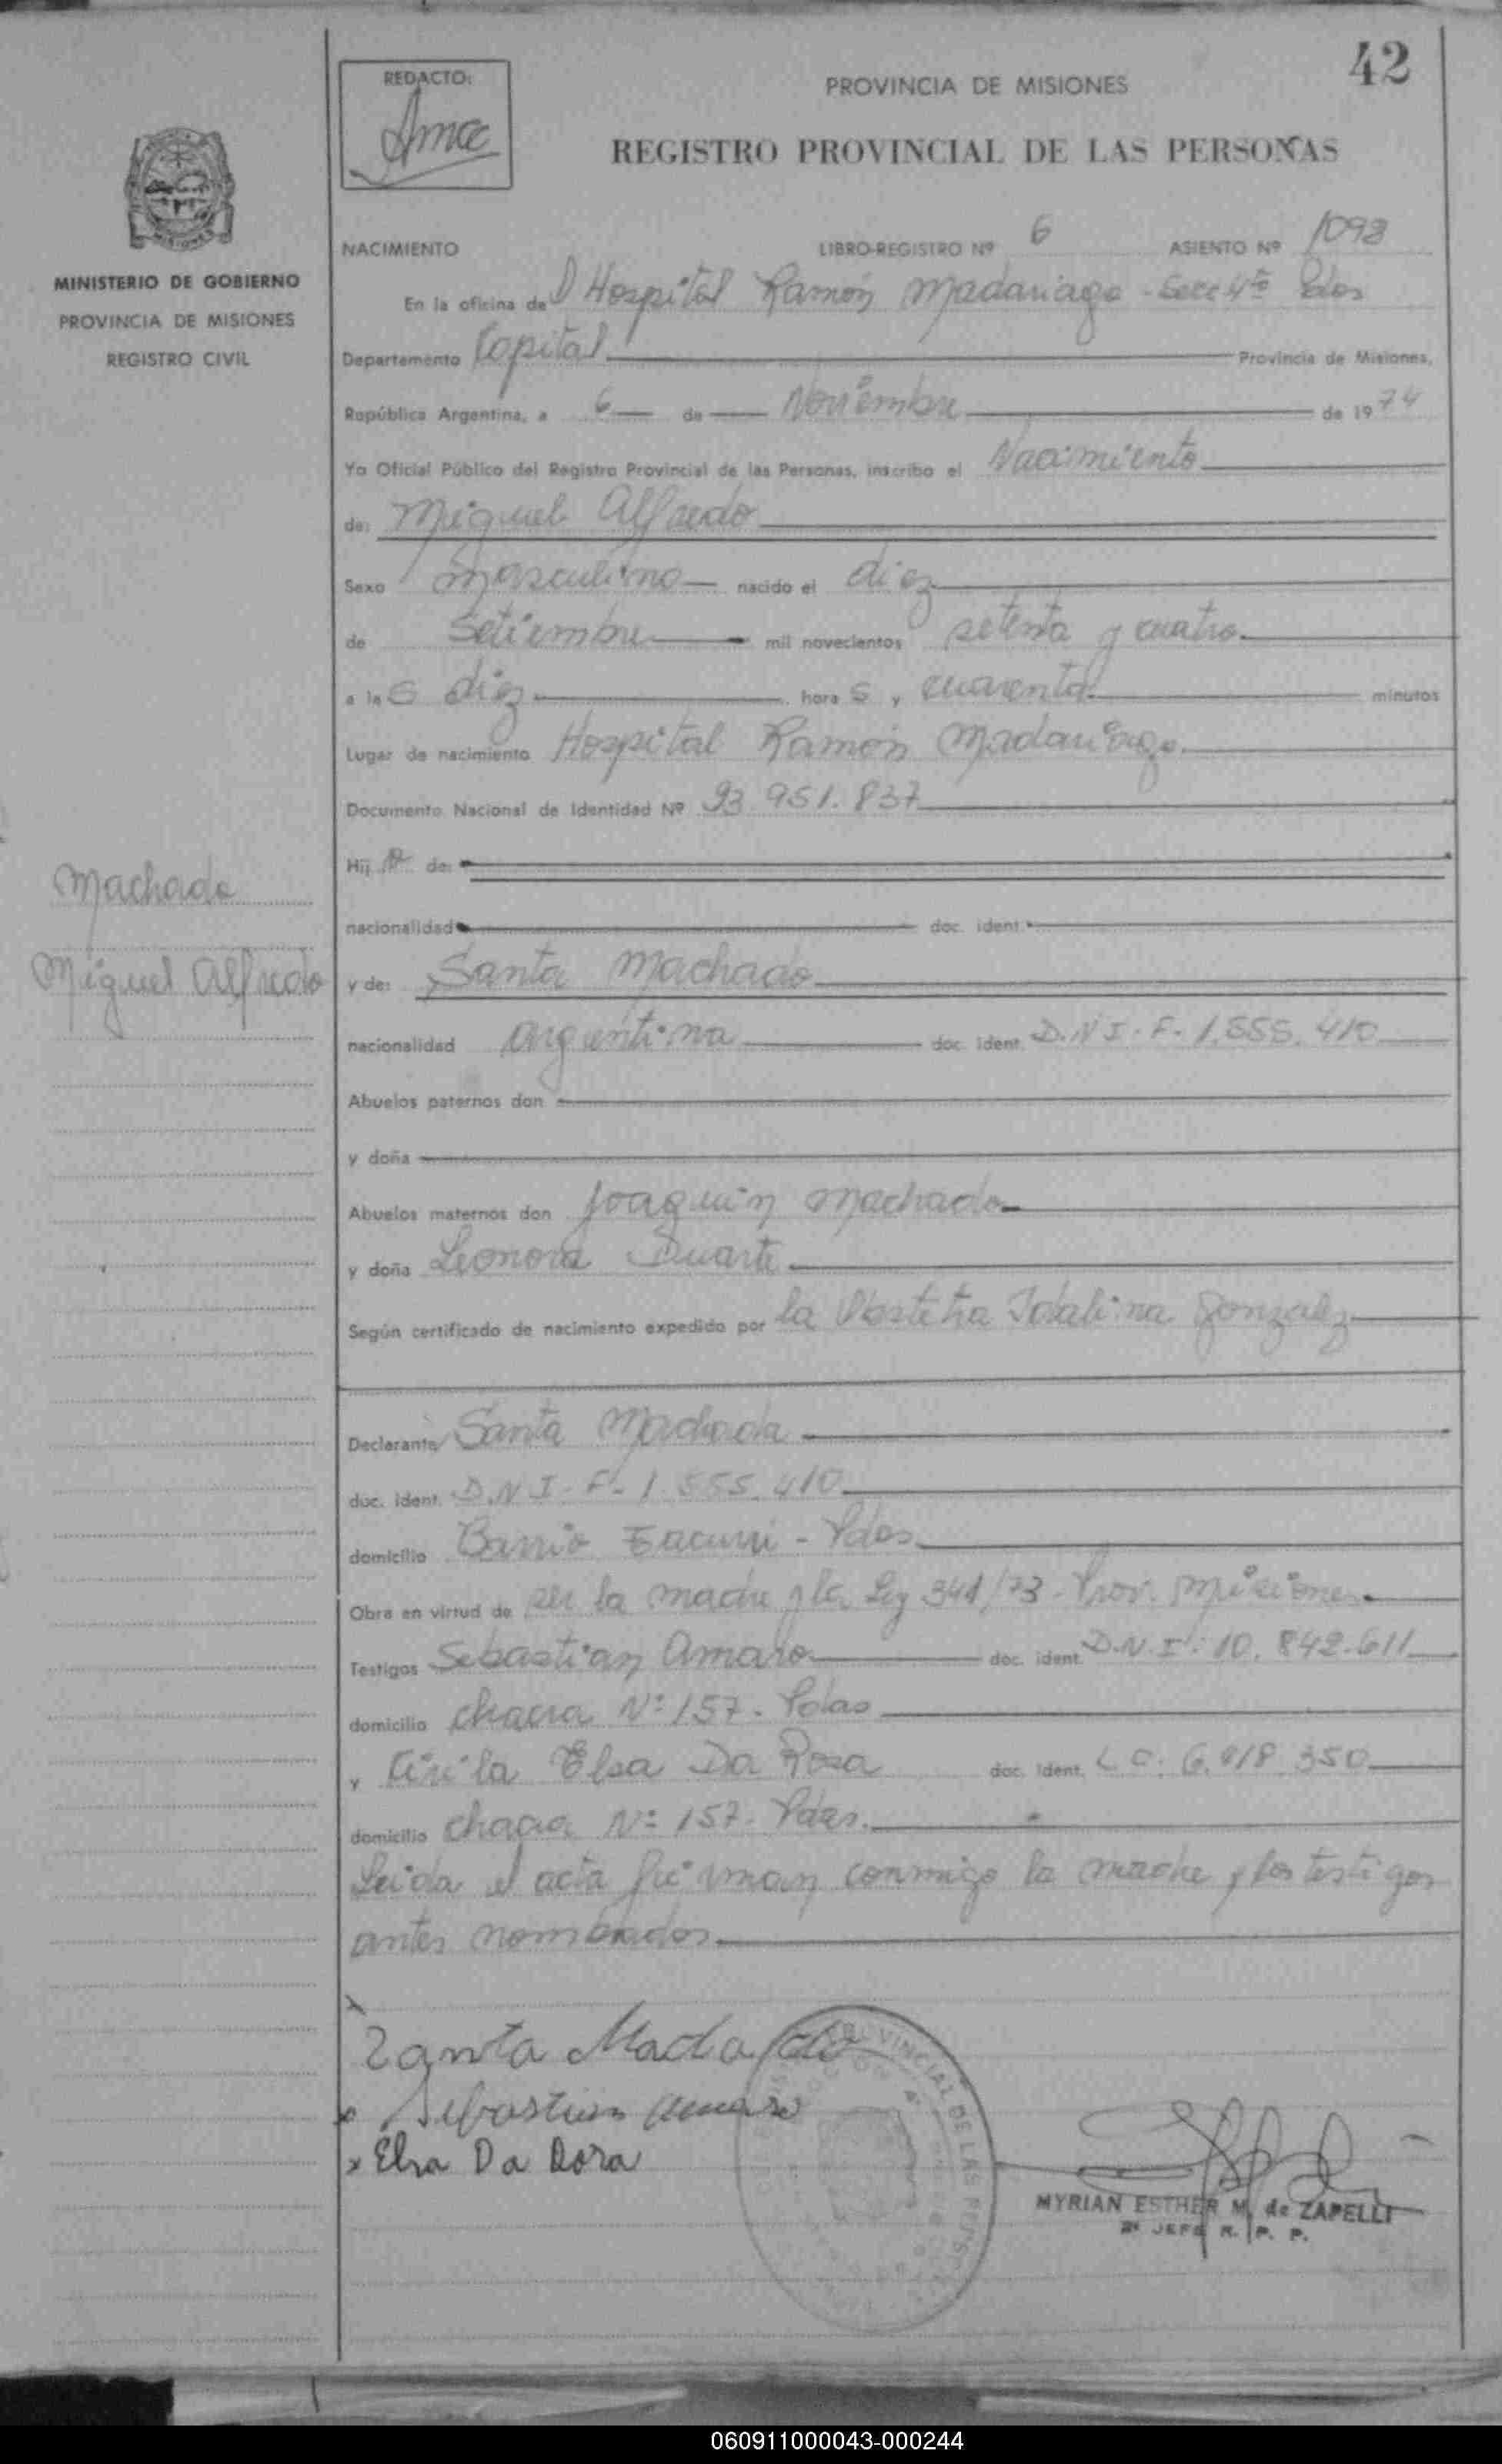 42
REDACTO:
PROVINCIA DE MISIONES
REGISTRO PROVINCIAL DE LAS PERSONAS
MISIONES
MINISTERIO DE GOBIERNO
PROVINCIA DE MISIONES
REGISTRO CIVIL
NACIMIENTO LIBRO-REGISTRO Nº 6 ASIENTO Nº 1098
En la oficina del Hospital Ramón Madariaga - Secc 4ta Pdas
Departamento Capital Provincia de Misiones,
República Argentina, a 6 de Noviembre de 1974
Yo Oficial Público del Registro Provincial de las Personas, inscribo el Nacimiento
de: Miguel Alfredo
Sexo masculino nacido el diez
de Setiembre mil novecientos setenta y cuatro
a las diez horas y cuarenta minutos
Lugar de nacimiento Hospital Ramón Madariaga
Documento Nacional de Identidad Nº 93.951.837
Hijo de:
nacionalidad doc. ident.
Machado
Miguel Alfredo
y de: Santa Machado
nacionalidad argentina doc. ident. D.N.I. F. 1.555.410
Abuelos paternos don
y doña
Abuelos maternos don Joaquin Machado
y doña Leonora Duarte
Según certificado de nacimiento expedido por la Obstetra gonzalez
Declarante Santa Machado
doc. ident. D.N.I. F. 1.555.410
domicilio Barrio - Pdas
Obra en virtud de ser la madre y la Ley 341/73 - Prov. Misiones
Testigos Sebastian Amaro doc. ident. D.N.I: 10.842.611
domicilio chacra Nº 157. Pdas
y Cirila Elsa Da Rosa doc. ident. L C. 6.618.350
domicilio chacra Nº 157. Pdas.
Leida el acta firman conmigo la madre y los testigos
antes nombrados
x
Santa Machado
x Sebastian Amaro
x Elsa Da Rosa
PROVINCIAL DE LAS PERSONAS
MYRIAN ESTHER M. de ZAPELLI
JEFE R. P. P.
060911000043-000244